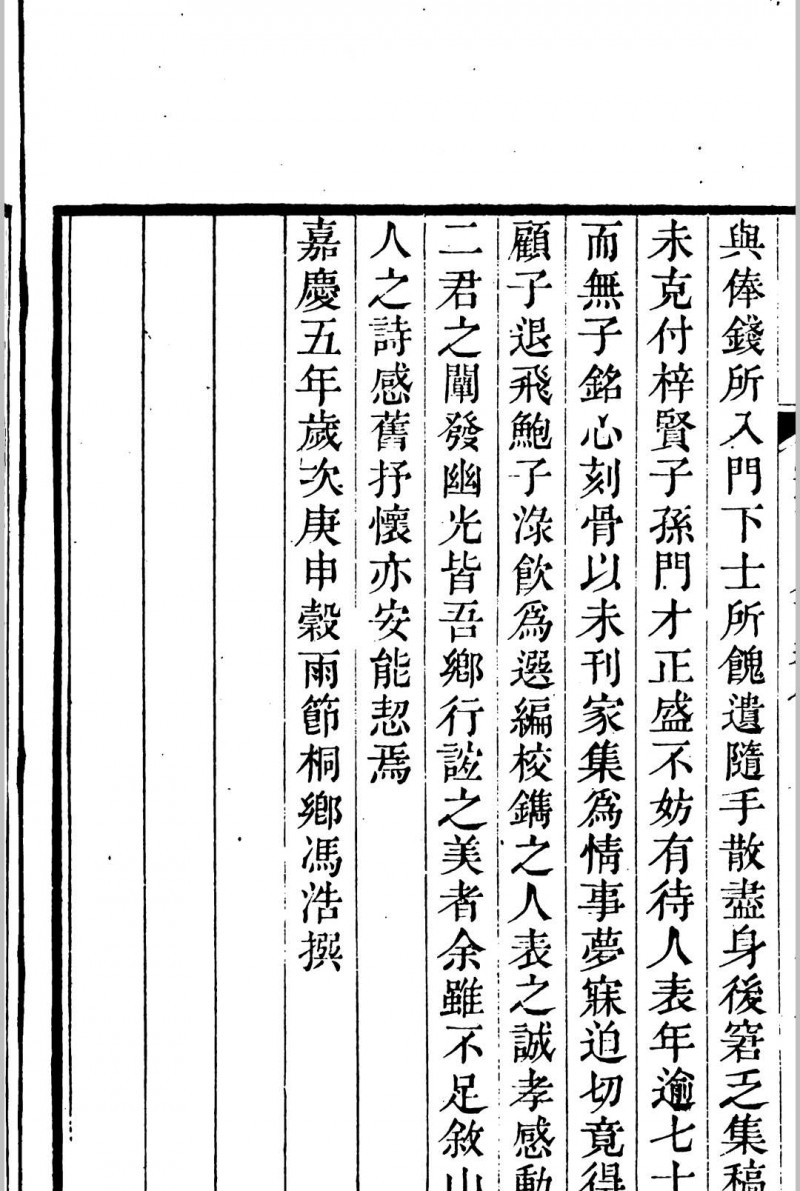 與俸錢所入門下士所餽遺隨手散盡身後窘乏集稿
未克付梓賢子孫門才正盛不妨有待人表年逾七十
而無子銘心刻骨以未刊家集爲情事夢寐迫切竟得
顧子退飛鮑子淥飮爲選編校鐫之人表之誠孝感動
二君之闡發幽光皆吾鄉行誼之美者余雖不足敘山
人之詩感舊抒懷亦安能恝焉
嘉慶五年歲次庚申穀雨節桐鄉馮浩撰